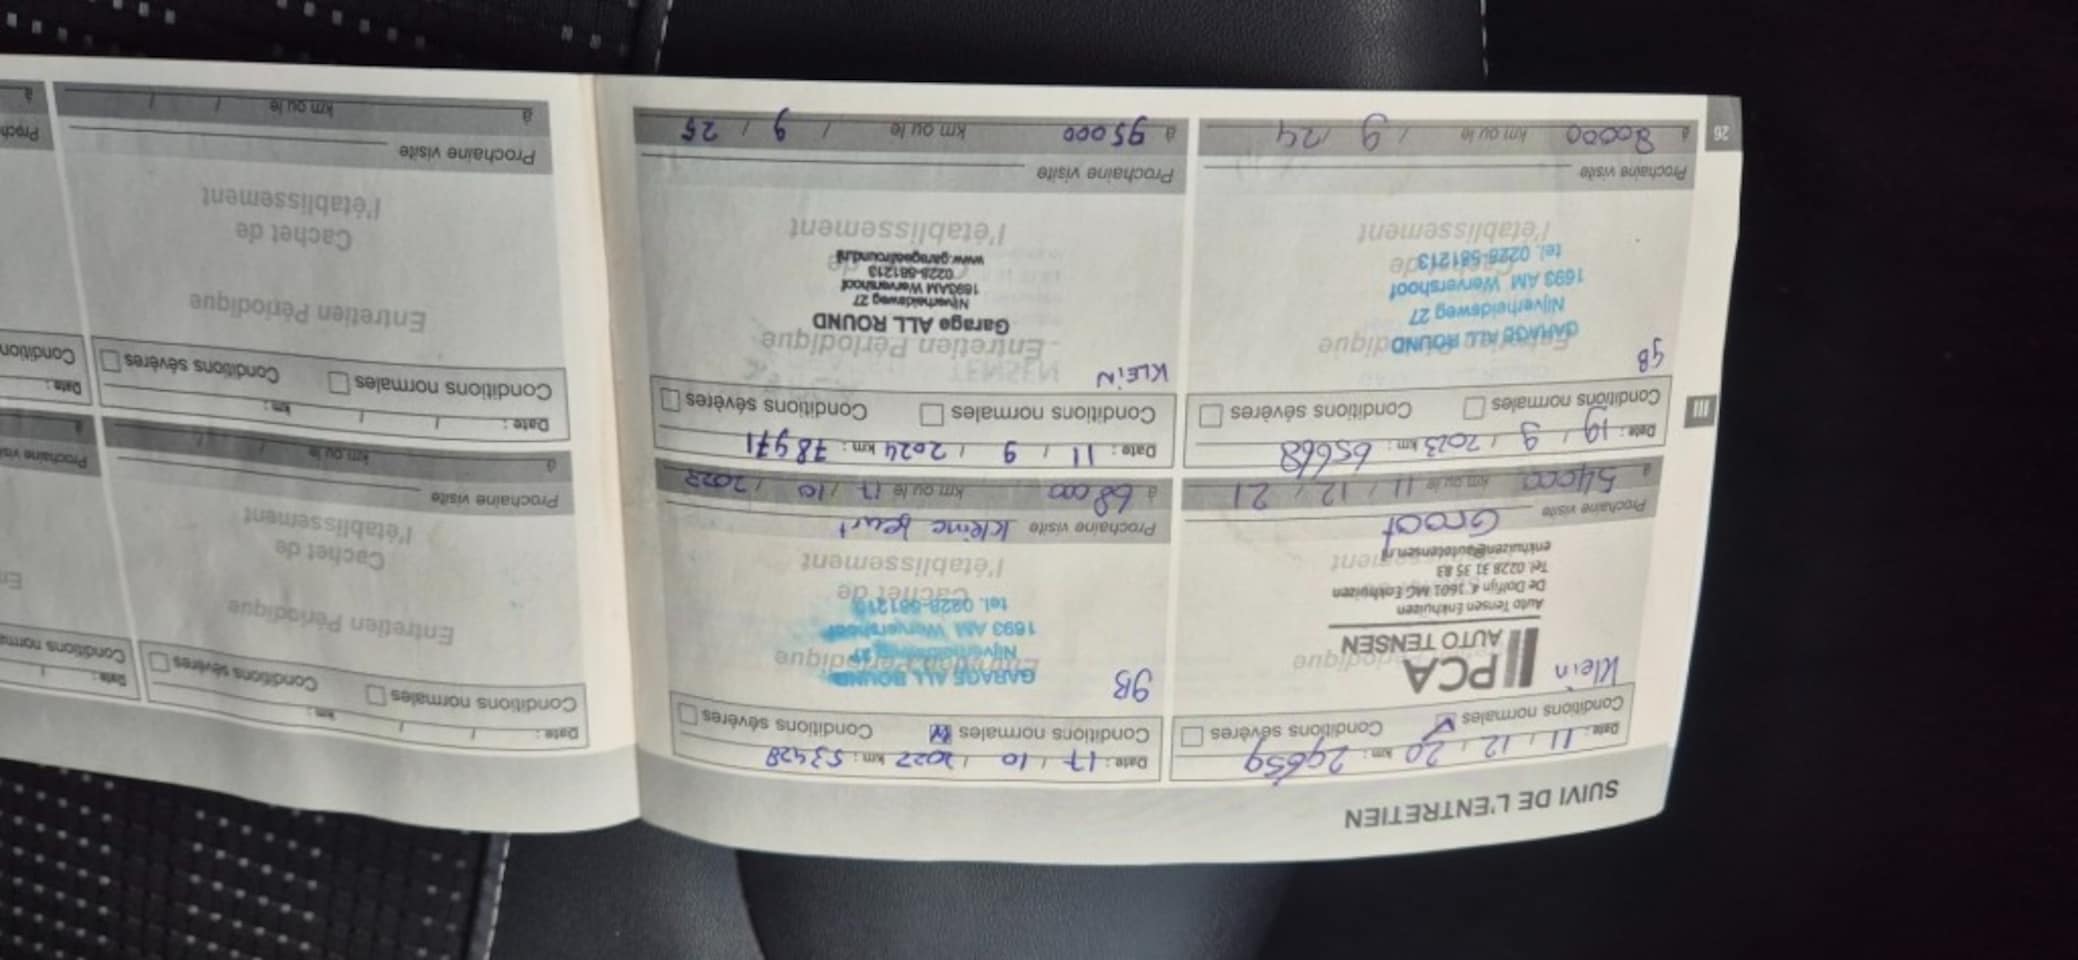 SUIVI DE L'ENTRETIEN
Date : 11 / 12 / 20 km : 29659
Conditions normales Conditions sévères
Klein
PCA
AUTO TENSEN
Auto Tensen Enkhuizen
De Dolfijn 4, 1601 MG Enkhuizen
Tel. 0228 31 35 83
enkhuizen@autotensen.nl
Prochaine visite Groot
à 54000 km ou le 11 / 12 / 21
Date : 17 / 10 / 2022 km : 53428
Conditions normales Conditions sévères
GB
Entretien Périodique
GARAGE ALL ROUND
Nijverheidsweg 27
1693 AM Wervershoof
tel. 0228-581213
Cachet de
l'établissement
Prochaine visite kleine beurt
à 68000 km ou le 17 / 10 / 2023
Date : 19 / 9 / 2023 km : 65668
Conditions normales Conditions sévères
GB
GARAGE ALL ROUND
Nijverheidsweg 27
1693 AM Wervershoof
tel. 0228-581213
l'établissement
Prochaine visite
à 80000 km ou le / 9 / 24
Date : 11 / 9 / 2024 km : 78971
Conditions normales Conditions sévères
KLEIN
Entretien Périodique
Garage ALL ROUND
Nijverheidsweg 27
1693AM Wervershoof
0228-581213
www.garageallround.nl
l'établissement
Prochaine visite
à 95000 km ou le / 9 / 25
26
III
Date : / / km :
Conditions normales Conditions sévères
Entretien Périodique
Cachet de
l'établissement
Prochaine visite
à km ou le / /
Date : / / km :
Conditions normales Conditions sévères
Entretien Périodique
Cachet de
l'établissement
Prochaine visite
à km ou le / /
Date :
Conditions
Prochaine
à
Date :
Condition
Proch
à